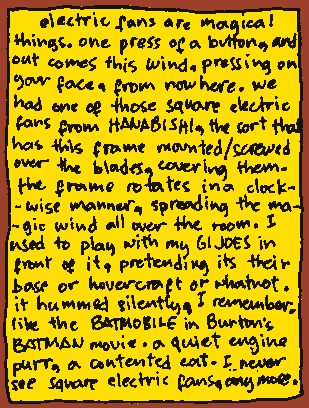 electric fans are magical
things. one press of a button, and
out comes this wind, pressing on
your face, from nowhere. we
had one of those square electric
fans from HANABISHI, the sort that
has this frame mounted/screwed
over the blades, covering them.
the frame rotates in a clock-
-wise manner, spreading the ma-
-gic wind all over the room. I
used to play with my GI JOES in
front of it, pretending its their
base or hovercraft or whatnot.
it hummed silently, I remember,
like the BATMOBILE in Burton's
BATMAN movie. a quiet engine
purr, a contented cat. I never
see square electric fans, any more.